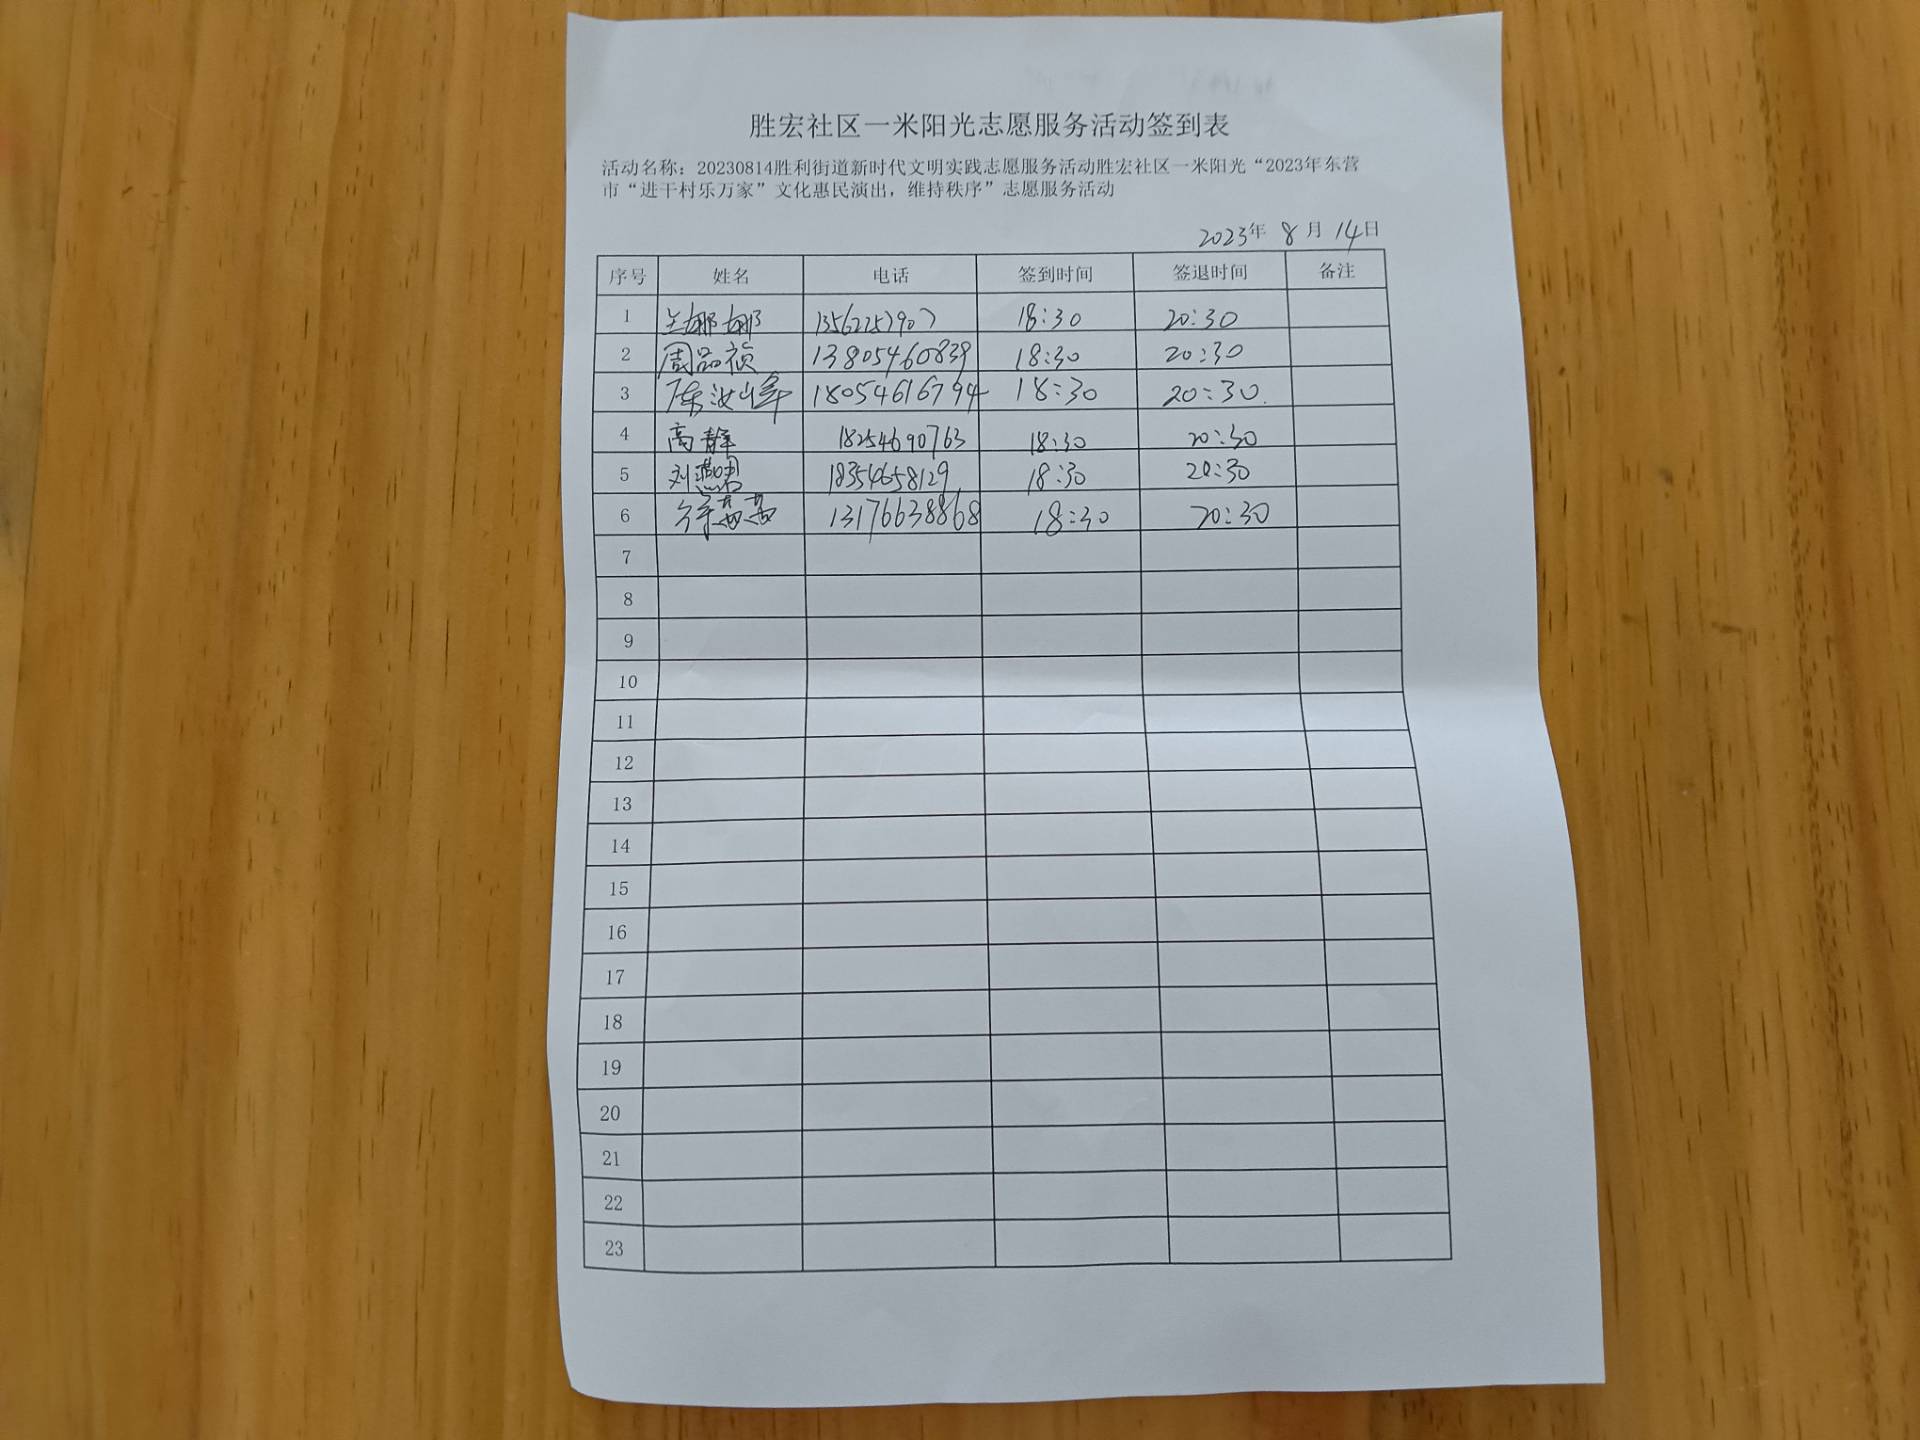 胜宏社区一米阳光志愿服务活动签到表
活动名称：20230814胜利街道新时代文明实践志愿服务活动胜宏社区一米阳光“2023年东营
市“进千村乐万家”文化惠民演出，维持秩序”志愿服务活动
2023年 8月 14日
序号 姓名 电话 签到时间 签退时间 备注
1 兰娜娜 18:30 20:30
2 周品祯 13805460839 18:30 20:30
3 陈汝峰 18054616794 18:30 20:30
4 高静 18254690763 18:30 20:30
5 刘 18354658129 18:30 20:30
6 徐 13176638868 18:30 20:30
7
8
9
10
11
12
13
14
15
16
17
18
19
20
21
22
23